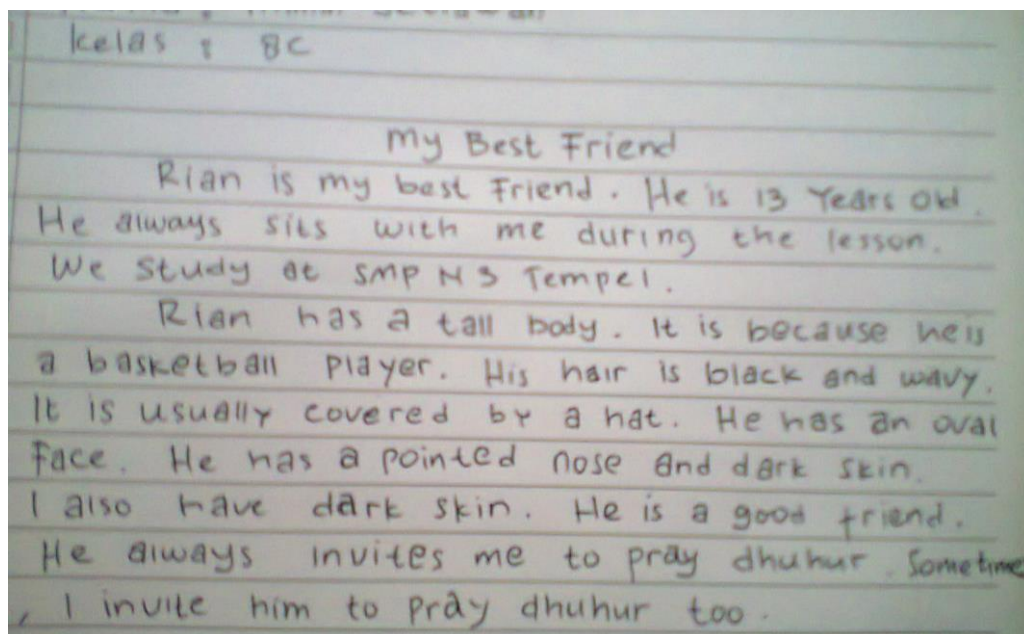 kelas : 8C
My Best Friend
Rian is my best Friend. He is 13 Years old.
He always sits with me during the lesson.
We study at SMP N 3 Tempel.
Rian has a tall body. It is because he is
a basketball Player. His hair is black and wavy.
It is usually covered by a hat. He has an oval
Face. He has a pointed nose and dark skin.
I also have dark skin. He is a good friend.
He always invites me to pray dhuhur. Sometime
, I invite him to pray dhuhur too.